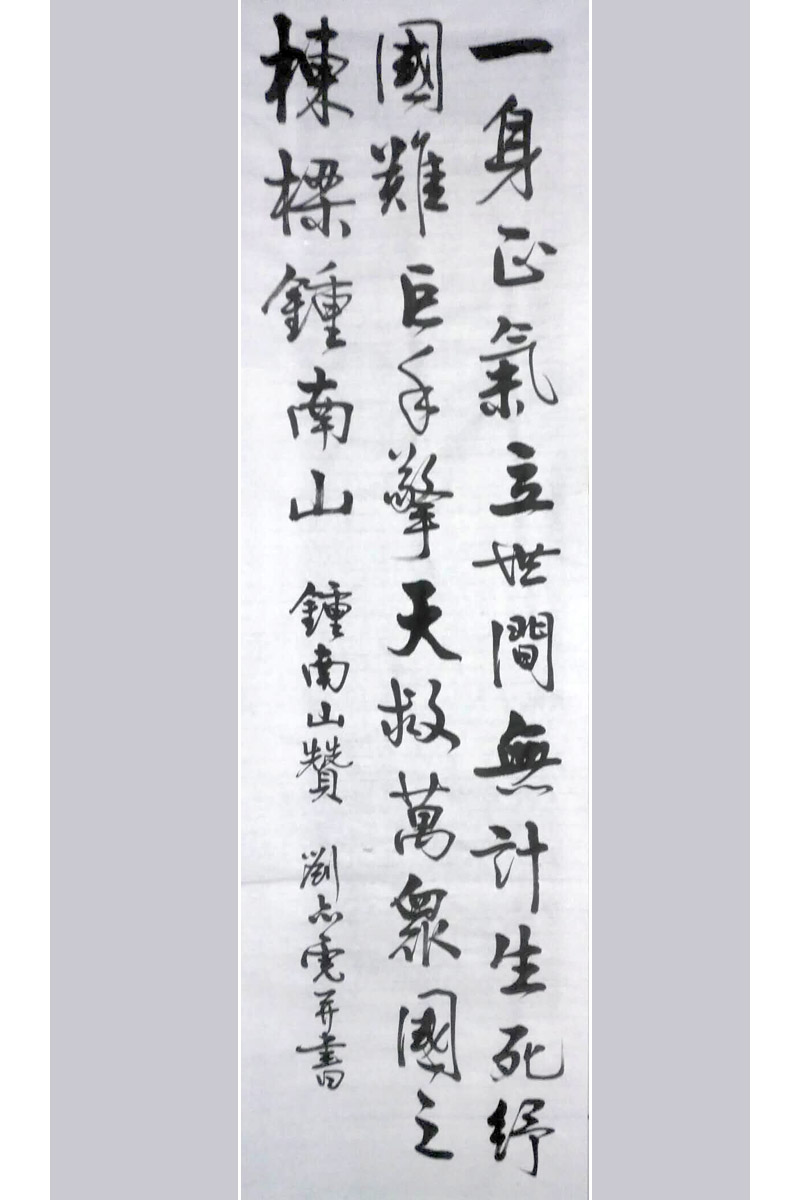 一身正氣立世間無計生死紓
國難巨手擎天救萬衆國之
棟樑鍾南山 鍾南山贊 劉志并書